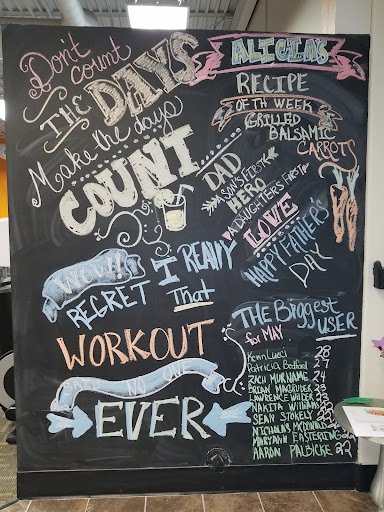 Don't
count
THE DAYS
Make the days
COUNT
ALICIA'S
RECIPE
OF TH WEEK
GRILLED
BALSAMIC
CARROTS
DAD
A SON'S FIRST
HERO
A DAUGHTERS FIRST
LOVE
HAPPY FATHER'S
DAY
WOW!!
I REALLY
REGRET That
WORKOUT
SAID NO ONE
EVER
THE Biggest
USER
for MAY
Kenn Lucci 28
Patricia Bedford 27
RICH MURNANE 24
BRIAN MACGRUDER 23
LAWRENCE WILDER 23
NAKITA WILLIAMS 22
SEAN STOKELY 22
NICHOLAS MCDONALD 22
MARYANN EASTERLING 22
AARON PALBICKE 22